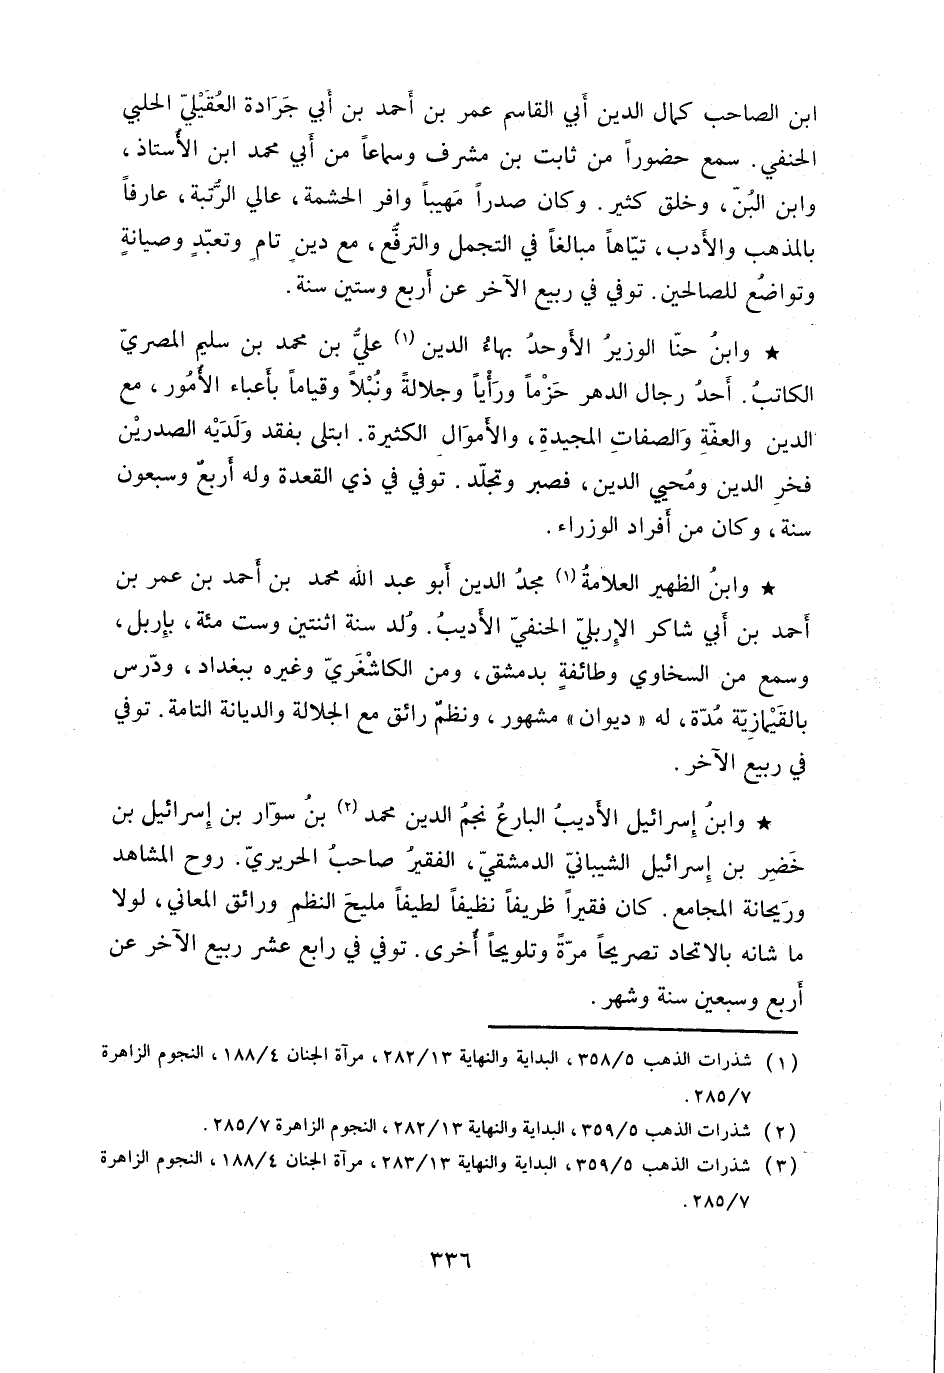 ابن الصاحب كمال الدين أبي القاسم عمر بن أحمد بن أبي جَرَادة العُقَيْليّ الحلبي
الحنفي. سمع حضوراً من ثابت بن مشرف وسماعاً من أبي محمد ابن الأُستاذ،
وابن البُنّ، وخلق كثير. وكان صدراً مَهيباً وافر الحشمة، عالي الرُّتبة، عارفاً
بالمذهب والأدب، تيّاهاً مبالغاً في التجمل والترفُّع، مع دين تام وتعبّدٍ وصيانةٍ
وتواضُع للصالحين. توفي في ربيع الآخر عن أربع وستين سنة.
★ وابنُ حنّا الوزيرُ الأوحدُ بهاءُ الدين (١) عليُّ بن محمد بن سليم المصريّ
الكاتبُ. أحدُ رجال الدهر حَزْماً ورَأْياً وجلالةً ونُبْلاً وقياماً بأعباء الأُمُور، مع
الدين والعفّةِ والصفاتِ المجيدةِ، والأموالِ الكثيرة. ابتلى بفقد وَلَدَيْه الصدريْن
فخرِ الدين ومُحيي الدين، فصبر وتجلّد. توفي في ذي القعدة وله أربعٌ وسبعون
سنة، وكان من أفراد الوزراء.
★ وابنُ الظهير العلامةُ (١) مجدُ الدين أبو عبد الله محمد بن أحمد بن عمر بن
أحمد بن أبي شاكر الإربليّ الحنفيّ الأديبُ. وُلد سنة اثنتين وست مئة، بإربل،
وسمع من السخاوي وطائفةٍ بدمشق، ومن الكاشْغَريّ وغيره ببغداد، ودّرس
بالقَيْمازيّة مُدّة، له «ديوان» مشهور، ونظمٌ رائق مع الجلالة والديانة التامة. توفي
في ربيع الآخر.
★ وابنُ إسرائيل الأديبُ البارعُ نجمُ الدين محمد (٢) بنُ سوّار بن إسرائيل بن
خَضِر بن إسرائيل الشيبانيّ الدمشقيّ، الفقيرُ صاحبُ الحريريّ. روح المشاهد
وريحانة المجامع. كان فقيراً ظريفاً نظيفاً لطيفاً مليحَ النظمِ ورائق المعاني، لولا
ما شانه بالاتحاد تصريحاً مرّةً وتلويحاً أُخرى. توفي في رابع عشر ربيع الآخر عن
أربع وسبعين سنة وشهر.
(١) شذرات الذهب ٣٥٨/٥، البداية والنهاية ٢٨٢/١٣، مرآة الجنان ١٨٨/٤، النجوم الزاهرة
٢٨٥/٧.
(٢) شذرات الذهب ٣٥٩/٥، البداية والنهاية ٢٨٢/١٣، النجوم الزاهرة ٢٨٥/٧.
(٣) شذرات الذهب ٣٥٩/٥، البداية والنهاية ٢٨٣/١٣، مرآة الجنان ١٨٨/٤، النجوم الزاهرة
٢٨٥/٧.
٣٣٦